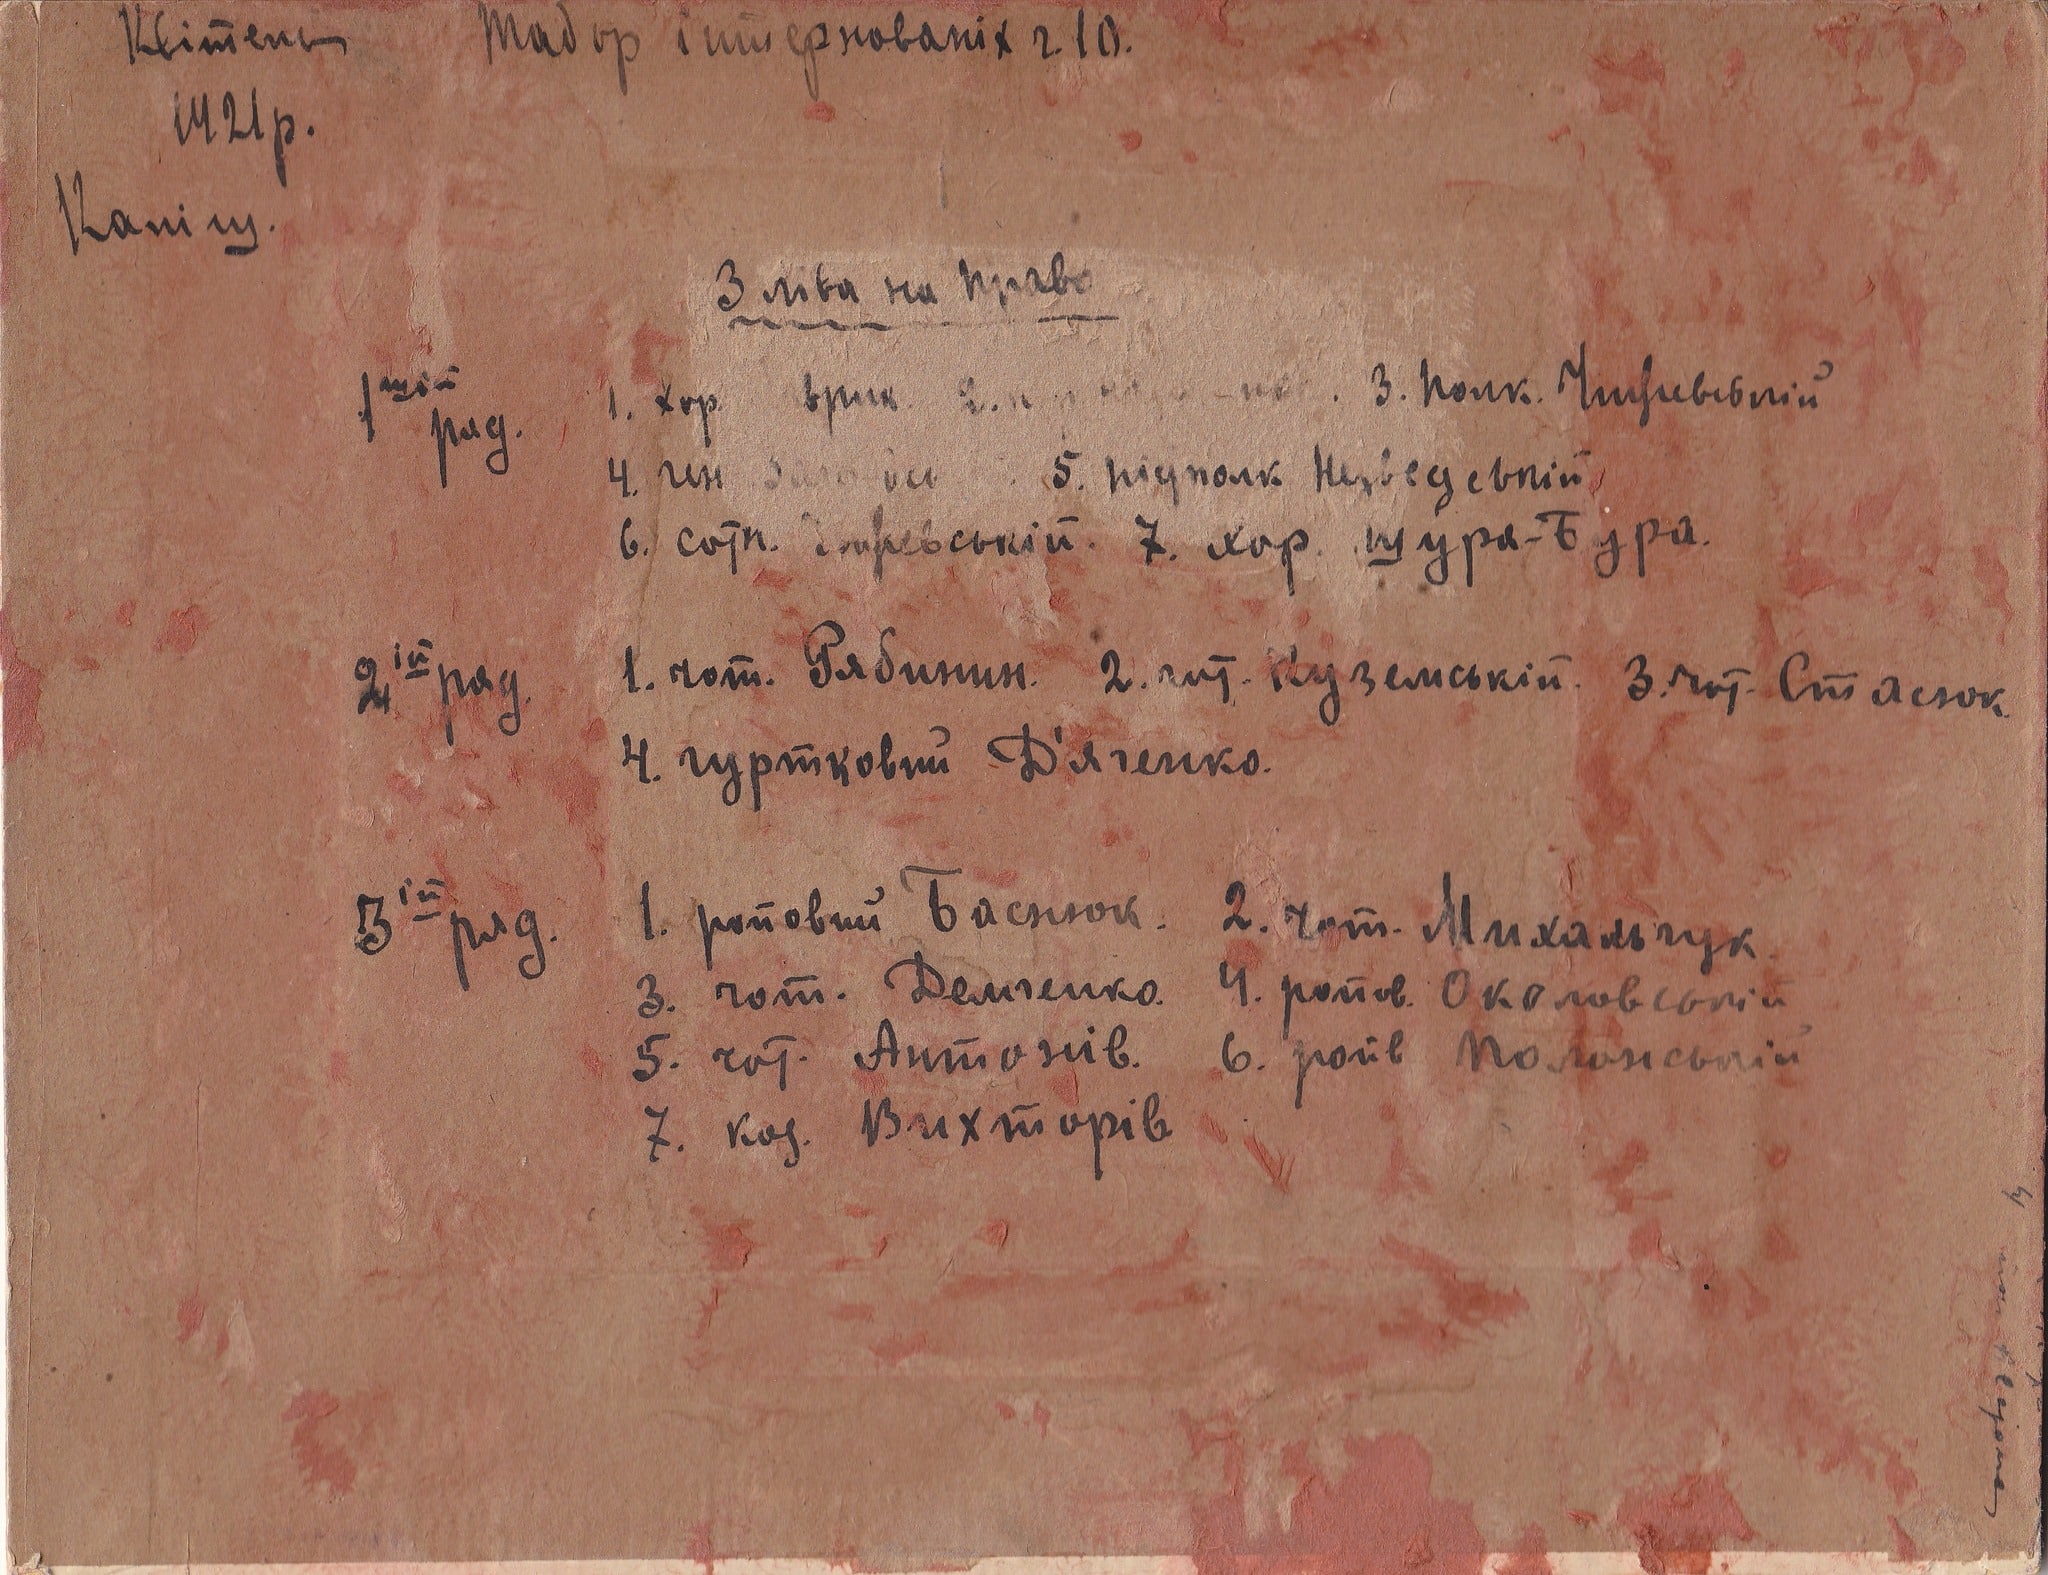 Квітень Табор інтернованіх ч. 10.
1921 р.
Каліш.
З ліва на право
1ший ряд. 1. хор. 2. 3. полк. Чижевський
4. ген 5. підполк Незведський
6. сотн. Чижевській. 7. хор. Щура-Бура.
2ій ряд. 1. чот. Рябинин. 2. чот. Куземській. 3. чот. Стасюк
4. гуртковий Д'яченко.
3ій ряд. 1. ройовий Баснюк. 2. чот. Михальчук.
3. чот. Демченко. 4. ройов. Околовській
5. чот. Антонів. 6. ройв Полонській
7. коз. Вихторів